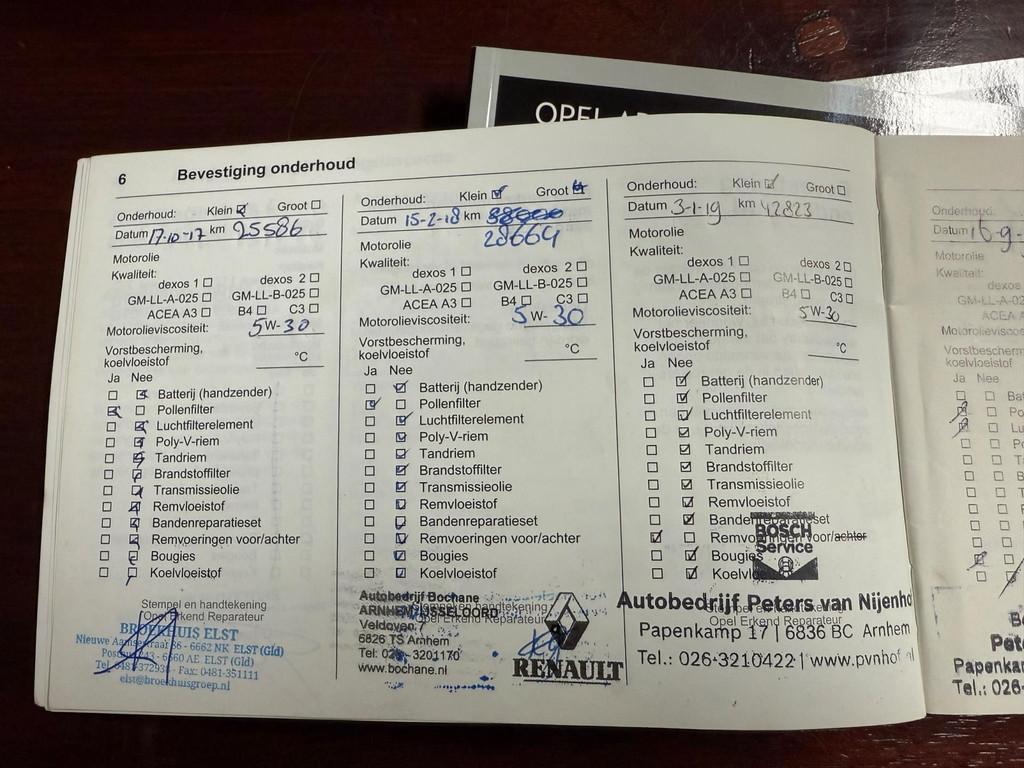 OPEL
6 Bevestiging onderhoud
Onderhoud: Klein ☑ Groot ☐
Datum 17-10-17 km 25586
Motorolie
Kwaliteit:
dexos 1 ☐ dexos 2 ☐
GM-LL-A-025 ☐ GM-LL-B-025 ☐
ACEA A3 ☐ B4 ☐ C3 ☐
Motorolieviscositeit: 5W-30
Vorstbescherming,
koelvloeistof °C
Ja Nee
☐ ☑ Batterij (handzender)
☑ ☐ Pollenfilter
☐ ☑ Luchtfilterelement
☐ ☑ Poly-V-riem
☐ ☑ Tandriem
☐ ☑ Brandstoffilter
☐ ☑ Transmissieolie
☐ ☑ Remvloeistof
☐ ☑ Bandenreparatieset
☐ ☑ Remvoeringen voor/achter
☐ ☑ Bougies
☐ ☑ Koelvloeistof
Stempel en handtekening
Opel Erkend Reparateur
BROEKHUIS ELST
6662 NK ELST (Gld)
6660 AE ELST (Gld)
Fax: 0481-351111
elst@broekhuisgroep.nl
Onderhoud: Klein ☑ Groot
Datum 15-2-18 km 38000
28664
Motorolie
Kwaliteit:
dexos 1 ☐ dexos 2 ☐
GM-LL-A-025 ☐ GM-LL-B-025 ☐
ACEA A3 ☐ B4 ☐ C3 ☐
Motorolieviscositeit: 5W-30
Vorstbescherming,
koelvloeistof °C
Ja Nee
☐ ☑ Batterij (handzender)
☑ ☐ Pollenfilter
☐ ☑ Luchtfilterelement
☐ ☑ Poly-V-riem
☐ ☑ Tandriem
☐ ☑ Brandstoffilter
☐ ☑ Transmissieolie
☐ ☑ Remvloeistof
☐ ☑ Bandenreparatieset
☐ ☑ Remvoeringen voor/achter
☐ ☑ Bougies
☐ ☑ Koelvloeistof
Stempel en handtekening
Opel Erkend Reparateur
Autobedrijf Bochane
ARNHEM/IJSSELOORD
Veldoven
6826 TS Arnhem
Tel: 026-3201170
www.bochane.nl
RENAULT
Onderhoud: Klein ☑ Groot ☐
Datum 3-1-19 km 42823
Motorolie
Kwaliteit:
dexos 1 ☐ dexos 2 ☐
GM-LL-A-025 ☐ GM-LL-B-025 ☐
ACEA A3 ☐ B4 ☐ C3 ☐
Motorolieviscositeit: 5W-30
Vorstbescherming,
koelvloeistof °C
Ja Nee
☐ ☑ Batterij (handzender)
☐ ☑ Pollenfilter
☐ ☑ Luchtfilterelement
☐ ☑ Poly-V-riem
☐ ☑ Tandriem
☐ ☑ Brandstoffilter
☐ ☑ Transmissieolie
☐ ☑ Remvloeistof
☐ ☑ Bandenreparatieset
☑ ☐ Remvoeringen voor/achter
☐ ☑ Bougies
☐ ☑ Koelvloeistof
BOSCH
Service
Stempel en handtekening
Opel Erkend Reparateur
Autobedrijf Peters van Nijenho
Papenkamp 17 | 6836 BC Arnhem
Tel.: 026-3210422 | www.pvnhof.nl
Onderhoud:
Datum 16-9-
Motorolie
Kwaliteit:
dexos
GM-LL-A-02
ACEA A
Motorolieviscositeit
Vorstbescherm
koelvloeistof
Ja Nee
Ba
Po
Lu
Pete
Papenka
Tel.: 026-